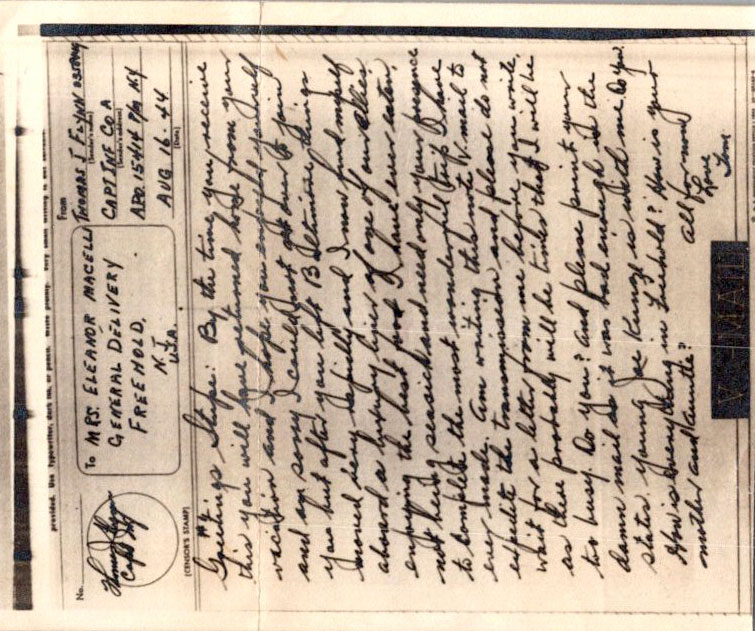 provided. Use typewriter, dark ink, or pencil. Write plainly. Very small writing is not suitable.
No.
To MRS. ELEANOR MACELLI
GENERAL DELIVERY
FREEHOLD,
N.J.
U.S.A.
From
THOMAS J FLYNN
(Sender's name)
CAPT INF CO A
(Sender's address)
APO 15414 P/M NY
AUG 16-44
(Date)
Capt Inf
(CENSOR'S STAMP)
Greetings : By the time you receive
this you will have returned home from your
vacation and I hope you enjoyed yourself
and am sorry I could not get down to join
you but after you left Baltimore things
moved very rapidly and I now find myself
aboard a luxury liner of one of our allies
enjoying the best food I have ever eaten,
not being seasick and need only your presence
to complete the most wonderful trip I have
ever made. Am writing this note V-mail to
expedite the transmission and please do not
wait for a letter from me before you write,
as there probably will be times that I will be
too busy. Do you? And please print your
damn mail as it was bad enough in the
states. Young Joe Kunze is with me. Do you
How is everything in Freehold? How is your
mother and auntie?
All for now
Love
Tom
V-MAIL